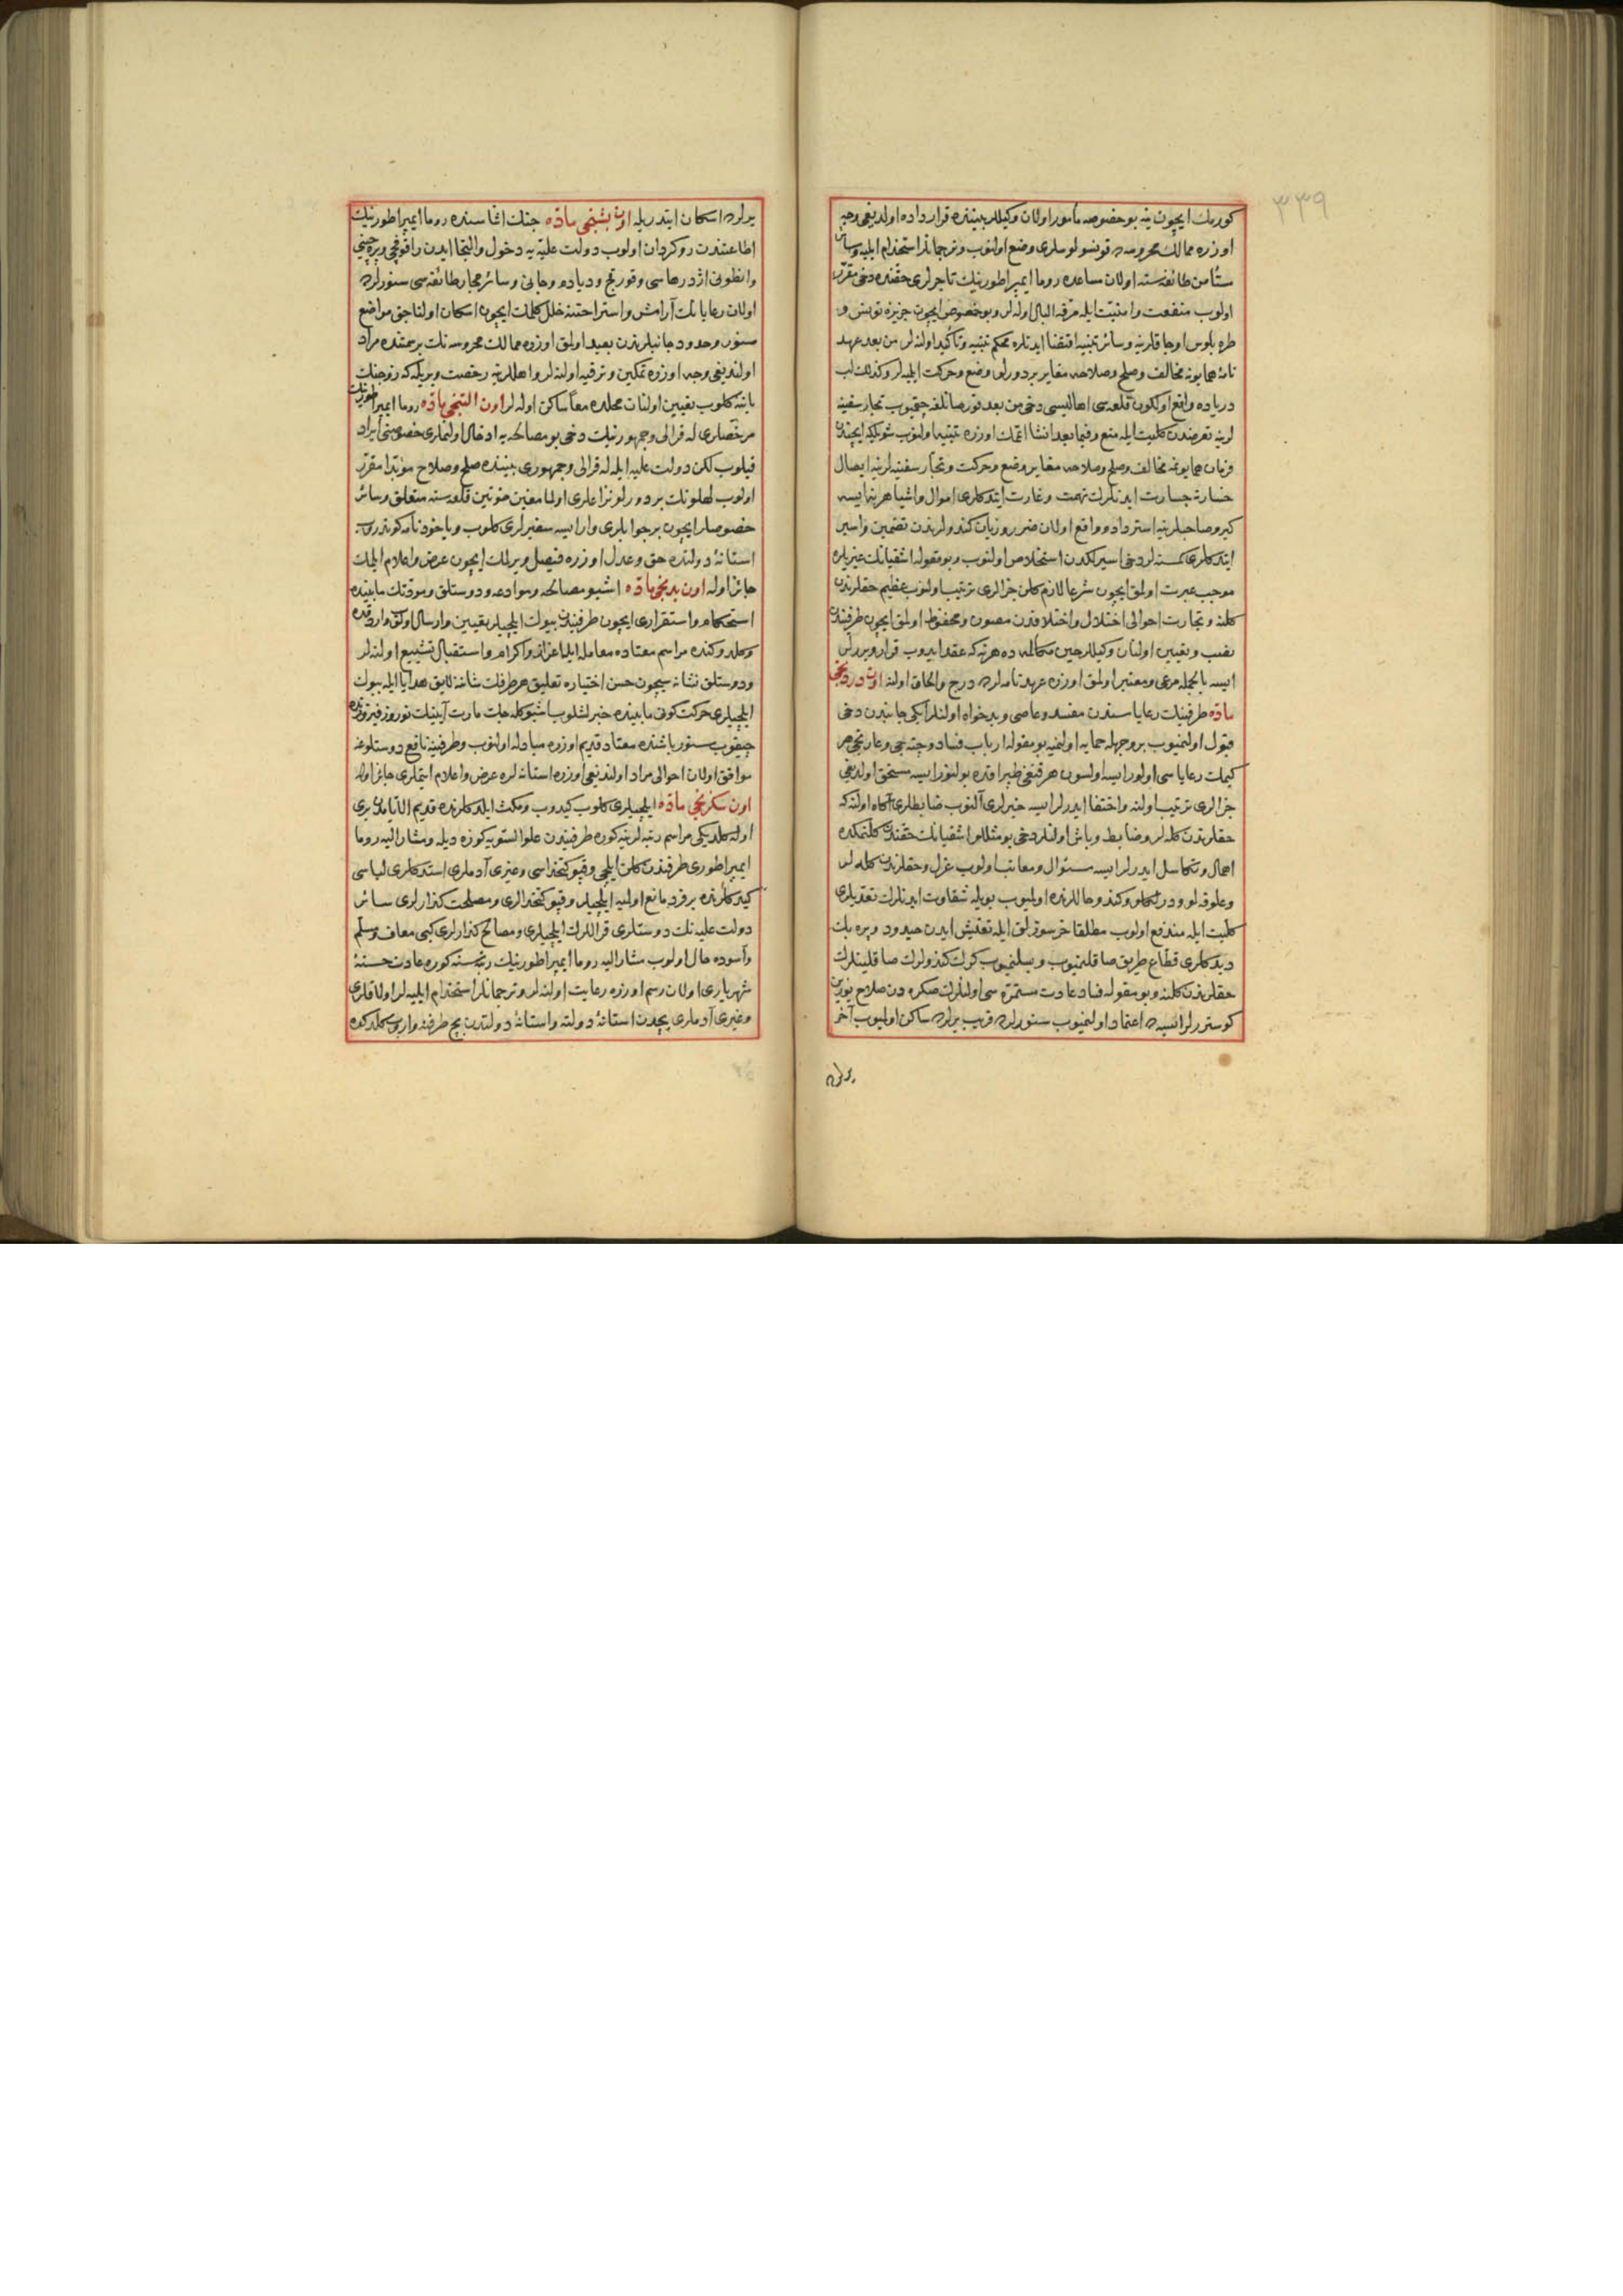 ٣٣٩
كورمك ايچون ينه بو خصوصه مأمور اولان وكيللر بيننده قرار داده اولديغى وجه
اوزره ممالك محروسه ده قونسولوسلرى وضع اولنوب وترجمانلر استخدام ايليه وسائر
مستأمن طائفه سنه اولان مساعده روما ايمپراطورينك تاجرلرى حقنده دخى مقرر
اولوب منفعت وامنيت ايله مرفه البال اوله لر وبو خصوص ايچون جزيره تونس و
طره بلوس اوجاقلرينه وسائر تنبيه اقتضا ايدنلره محكم تنبيه وتأكيد اولنه لر من بعد عهد
نامهٔ همايونه مخالف وصلح وصلاحه مغاير بر دورلو وضع وحركت ايليه لر وكذلك لب
درياده واقع اولكون قلعه سى اهاليسى دخى من بعد قورصانلغه چقميوب تجار سفينه
لرينه تعرضدن كليت ايله منع وفيما بعد انشا اتمك اوزره تنبيه اولنوب شويله كه ايچندن
فرمان همايونه مخالف وصلح وصلاحه مغاير وضع وحركت وتجار سفينه لرينه ايصال
خسارته جسارت ايدنلرك نهمت وغارت ايتدكلرى اموال واشيا هر نه ايسه
كيرو صاحبلرينه استرداد وواقع اولان ضرر وزيان كندولريندن تضمين واسير
ايتدكلرى كمسنه لر دخى اسيرلكدن استخلاص اولنوب وبو مقوله اشقيانك غيريلره
موجب عبرت اولمق ايچون شرعا لازم كلن جزالرى ترتيب اولنوب عظيم حقلرندن
كلنه وتجارت احوالى اختلال واختلافدن مصون ومحفوظ اولمق ايچون طرفيندن
نصب وتعيين اولنان وكيللر حين مكالمه ده هر نه كه عقد ايدوب قرار ويررلر
ايسه بالجمله مرعى ومعتبر اولمق اوزره عهدنامه لرده درج والحاق اولنه اون دردنجى
ماده طرفينك رعاياسندن مفسد وعاصى وبدخواه اولنلر ايكى جانبدن دخى
قبول اولنميوب بر وجهله حمايه اولنميه بو مقوله ارباب فساد وچته جى وغارتجى هر
كيمك رعاياسى اولور ايسه اولسون هر قنغى طپراقده بولنور ايسه مستحق اولديغى
جزالرى ترتيب اولنه واختفا ايدرلر ايسه خبرلرى آلنوب ضابطلرى آكاه اولنه كه
حقلرندن كله لر وضابط وباش اولنلر دخى بو مثللو اشقيانك حقندن كلنمكده
اهمال وتكاسل ايدرلر ايسه سئوال ومعاتب اولوب عزل وحقلرندن كله لر
وعلوفه لو ودرلكلو وكندو حاللرنده اولميوب بويله شقاوت ايدنلرك تعديلرى
كليت ايله مندفع اولوب مطلقا خرسوزلق ايله تعيش ايدن حيدود وپره بك
ديدكلرى قطاع طريق صاقلنميوب وبسلنميوب كرك كندولرك صاقلينلرك
حقلرندن كلنه وبو مقوله فساد عادت مستمره سى اولنلرك صكره دن صلاح يوزين
كوسترر لر ايسه ده اعتماد اولنميوب سنورلره قريب يرلرده ساكن اولميوب آخر
يرلره
يرلره اسكان ايتدريله اون بشنجى ماده جنك اثناسنده روما ايمپراطورينك
اطاعتندن روكردان اولوب دولت عليه يه دخول والتجا ايدن راقوچى وبرچنى
وانطونى اژدرهاسى وفورغچ ودياده وجاقى وسائر مجار طائفه سى سنورلرده
اولان رعايانك آرامش واستراحتنه خلل كلمك ايچون اسكان اولناجق مواضع
سنور وحدود جانبلرندن بعيد اولمق اوزره ممالك محروسه نك بر سمتنده مراد
اولنديغى وجه اوزره تمكين وترفيه اولنه لر واهللرينه رخصت ويريله كه زوجنك
يانه كلوب تعيين اولنان محلده معا ساكن اوله لر اون التنجى ماده روما ايمپراطورينك
مرخصلرى له قرالى وجمهورينك دخى بو مصالحه يه ادخال اولنملرى خصوصنى ايراد
قيلوب لكن دولت عليه ايله له قرالى وجمهورى بيننده صلح وصلاح مؤبدا مقرر
اولوب لهلونك بر دورلو نزاعلرى اولما مغين خوتين قلعه سنه متعلق وسائر
خصوصلر ايچون بر جوابلرى وار ايسه سفيرلرى كلوب وياخود نامه كوندروب
استانهٔ دولتده حق وعدل اوزره فيصل ويرلمك ايچون عرض واعلام ايلمك
جائز اوله اون يدنجى ماده اشبو مصالحه وموادعه ودوستلق ومودتك مابينده
استحكام واستقرارى ايچون طرفيندن بيوك ايلچيلر تعيين وارسال اولنه واردقده
وكلدوكنده مراسم معتاده معامله ايله اعزاز واكرام واستقبال وتشييع اولنه لر
ودوستلق نشانه سيچون حسن اختياره تعليق هر طرفك شاننه لايق هدايا ايله بيوك
ايلچيلرى حركت كونى مابينده خبرلشلوب اشبو كله جك مارت آينك نوروز فيروزنده
چيقوب سنور باشنده معتاد قديم اوزره مبادله اولنوب وطرفينه نافع ودوستلوغه
موافق اولان احوالى مراد اولنديغى اوزره استانه لره عرض واعلام ايتملرى جائز اوله
اون سكزنجى ماده ايلچيلرى كلوب كيدوب ومكث ايلدكلرنده قديم الايامدن برى
اوله كلديكى مراسم رتبه لرينه كوره طرفيندن على السويه كوزه ديله ومشار اليه روما
ايمپراطورى طرفندن كلن ايلچى وقپو كتخداسى وغيرى آدملرى استدكلرى لباسى
كيدكلرنده بر فرد مانع اولميه ايلچيلر وقپو كتخدالرى ومصلحت كذارلرى سائر
دولت عليه نك دوستلرى قراللرك ايلچيلرى ومصالح كذارلرى كبى معاف ومسلم
وآسوده حال اولوب مشار اليه روما ايمپراطورينك رتبه سنه كوره عادت حسنهٔ
شهريارى اولان رسم اوزره رعايت اولنه لر وترجمانلر استخدام ايليه لر اولاقلرى
وغيرى آدملرى بچدن استانهٔ دولته واستانهٔ دولتدن بچ طرفنه واروب كلدكده